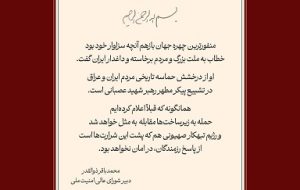 بسم الله الرحمن الرحیم
منفورترین چهره جهان بازهم آنچه سزاوار خود بود
خطاب به ملت بزرگ و مردم برخاسته و داغدار ایران گفت.
او از درخشش حماسه تاریخی مردم ایران و عراق
در تشییع پیکر مطهر رهبر شهید عصبانی است.
همانگونه که قبلاً اعلام کرده‌ایم
حمله به زیرساخت‌ها مقابله به مثل خواهد شد
و رژیم تبهکار صهیونی هم که پشت این شرارت‌ها است
از پاسخ رزمندگان، در امان نخواهد بود.
محمدباقر ذوالقدر
دبیر شورای عالی امنیت ملی